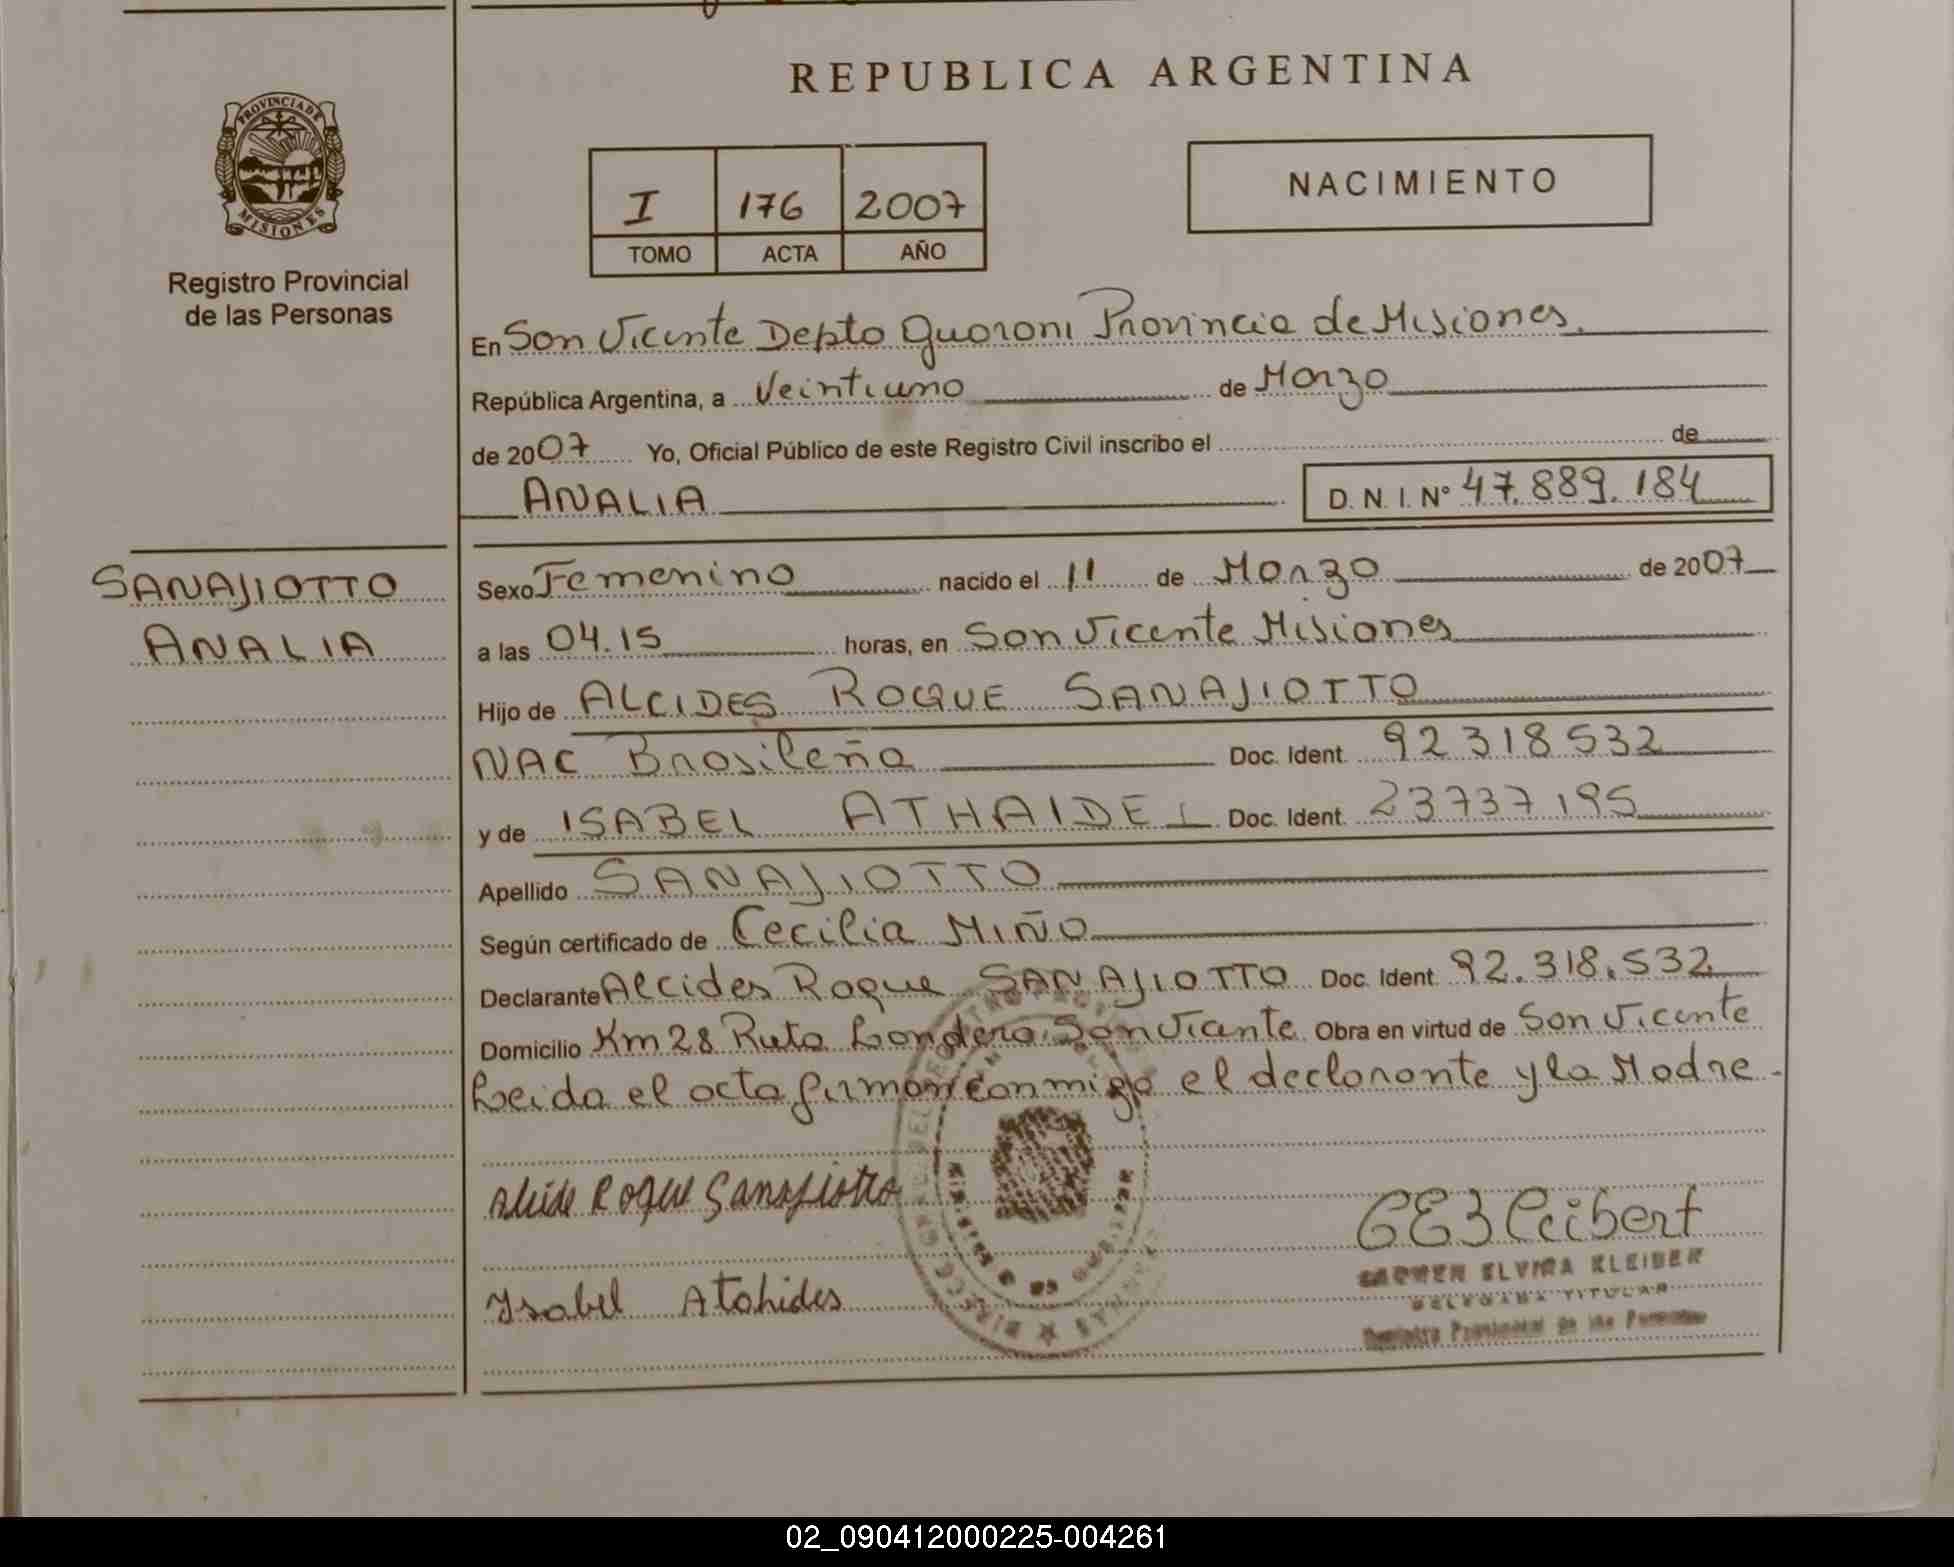 REPUBLICA ARGENTINA
PROVINCIA DE
MISIONES
Registro Provincial
de las Personas
I 176 2007
TOMO ACTA AÑO
NACIMIENTO
En San Vicente Depto Guarani Provincia de Misiones.
República Argentina, a Veintiuno de Marzo
de 2007 Yo, Oficial Público de este Registro Civil inscribo el de
ANALIA D. N. I. Nº 47.889.184
SANAJIOTTO
ANALIA
Sexo Femenino nacido el 11 de Marzo de 2007
a las 04.15 horas, en San Vicente Misiones
Hijo de ALCIDES ROQUE SANAJIOTTO
NAC Brasileña Doc. Ident. 92 318 532
y de ISABEL ATHAIDEL Doc. Ident. 23737195
Apellido SANAJIOTTO
Según certificado de Cecilia MIÑO
Declarante Alcides Roque SANAJIOTTO Doc. Ident. 92.318.532
Domicilio Km 28 Ruta Londero San Vicente Obra en virtud de San Vicente
Leida el acta firman conmigo el declarante y la Madre.
Roque Sanajiotto
Isabel Atahides
CARMEN ELVIRA KLEIBER
DELEGADA TITULAR
Registro Provincial de las Personas
02_090412000225-004261